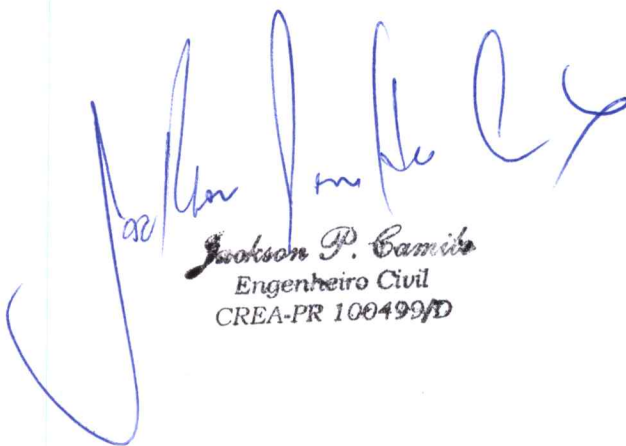 Jackson P. Camilo
Engenheiro Civil
CREA-PR 100499/D